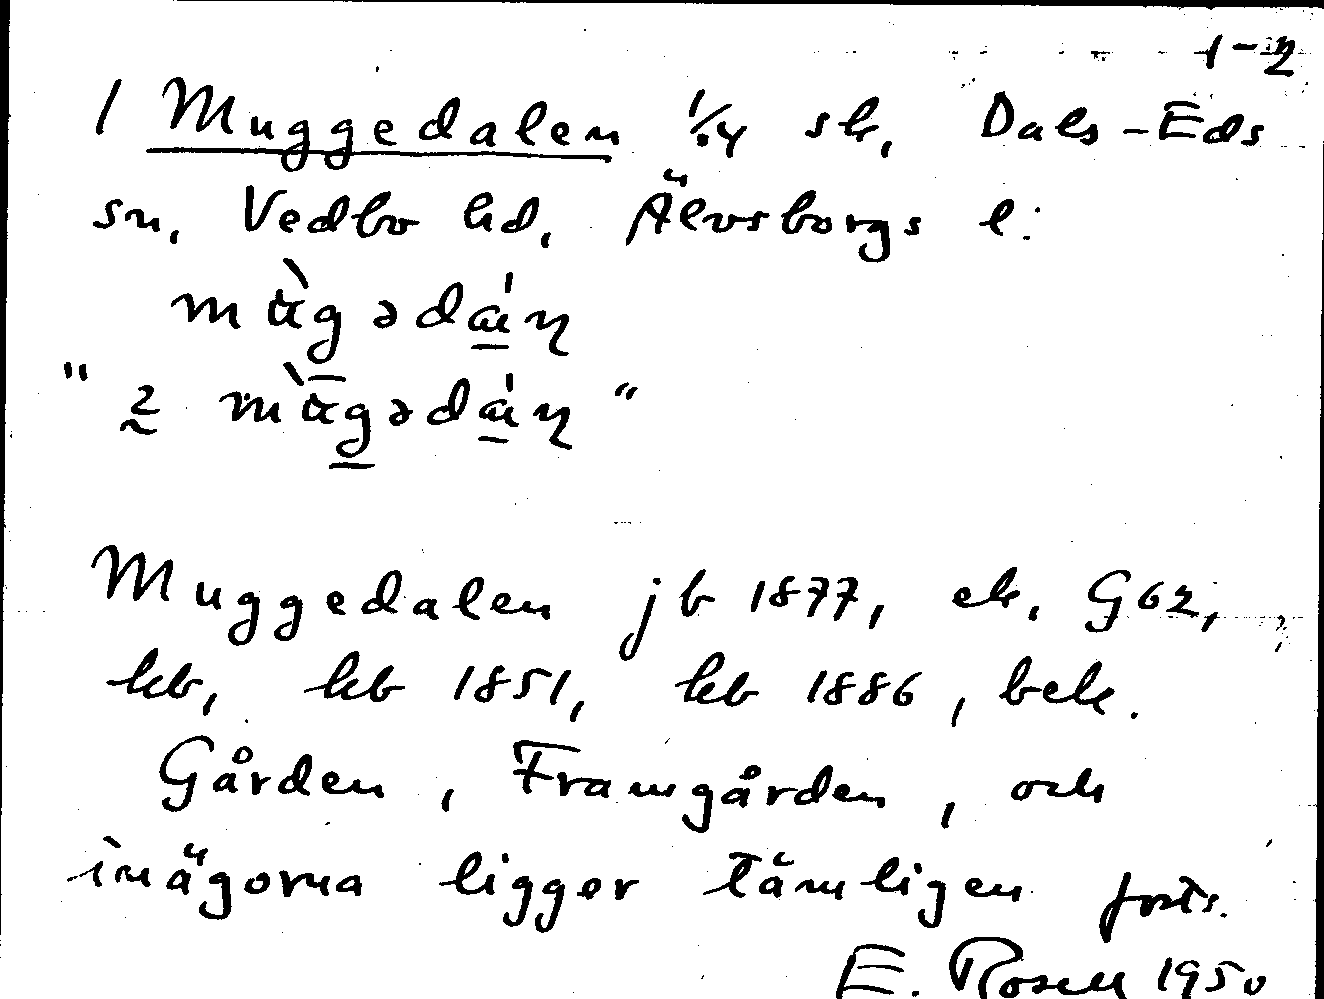 1-2
1 Muggedalen 1/4 sk, Dals-Eds
sn, Vedbo hd, Älvsborgs l:
Muggedalen jb 1877, ek. G62,
kb, kb 1851, kb 1886, bek.
Gården, Framgården, och
inägorna ligger tämligen forts.
E. Rosell 1950